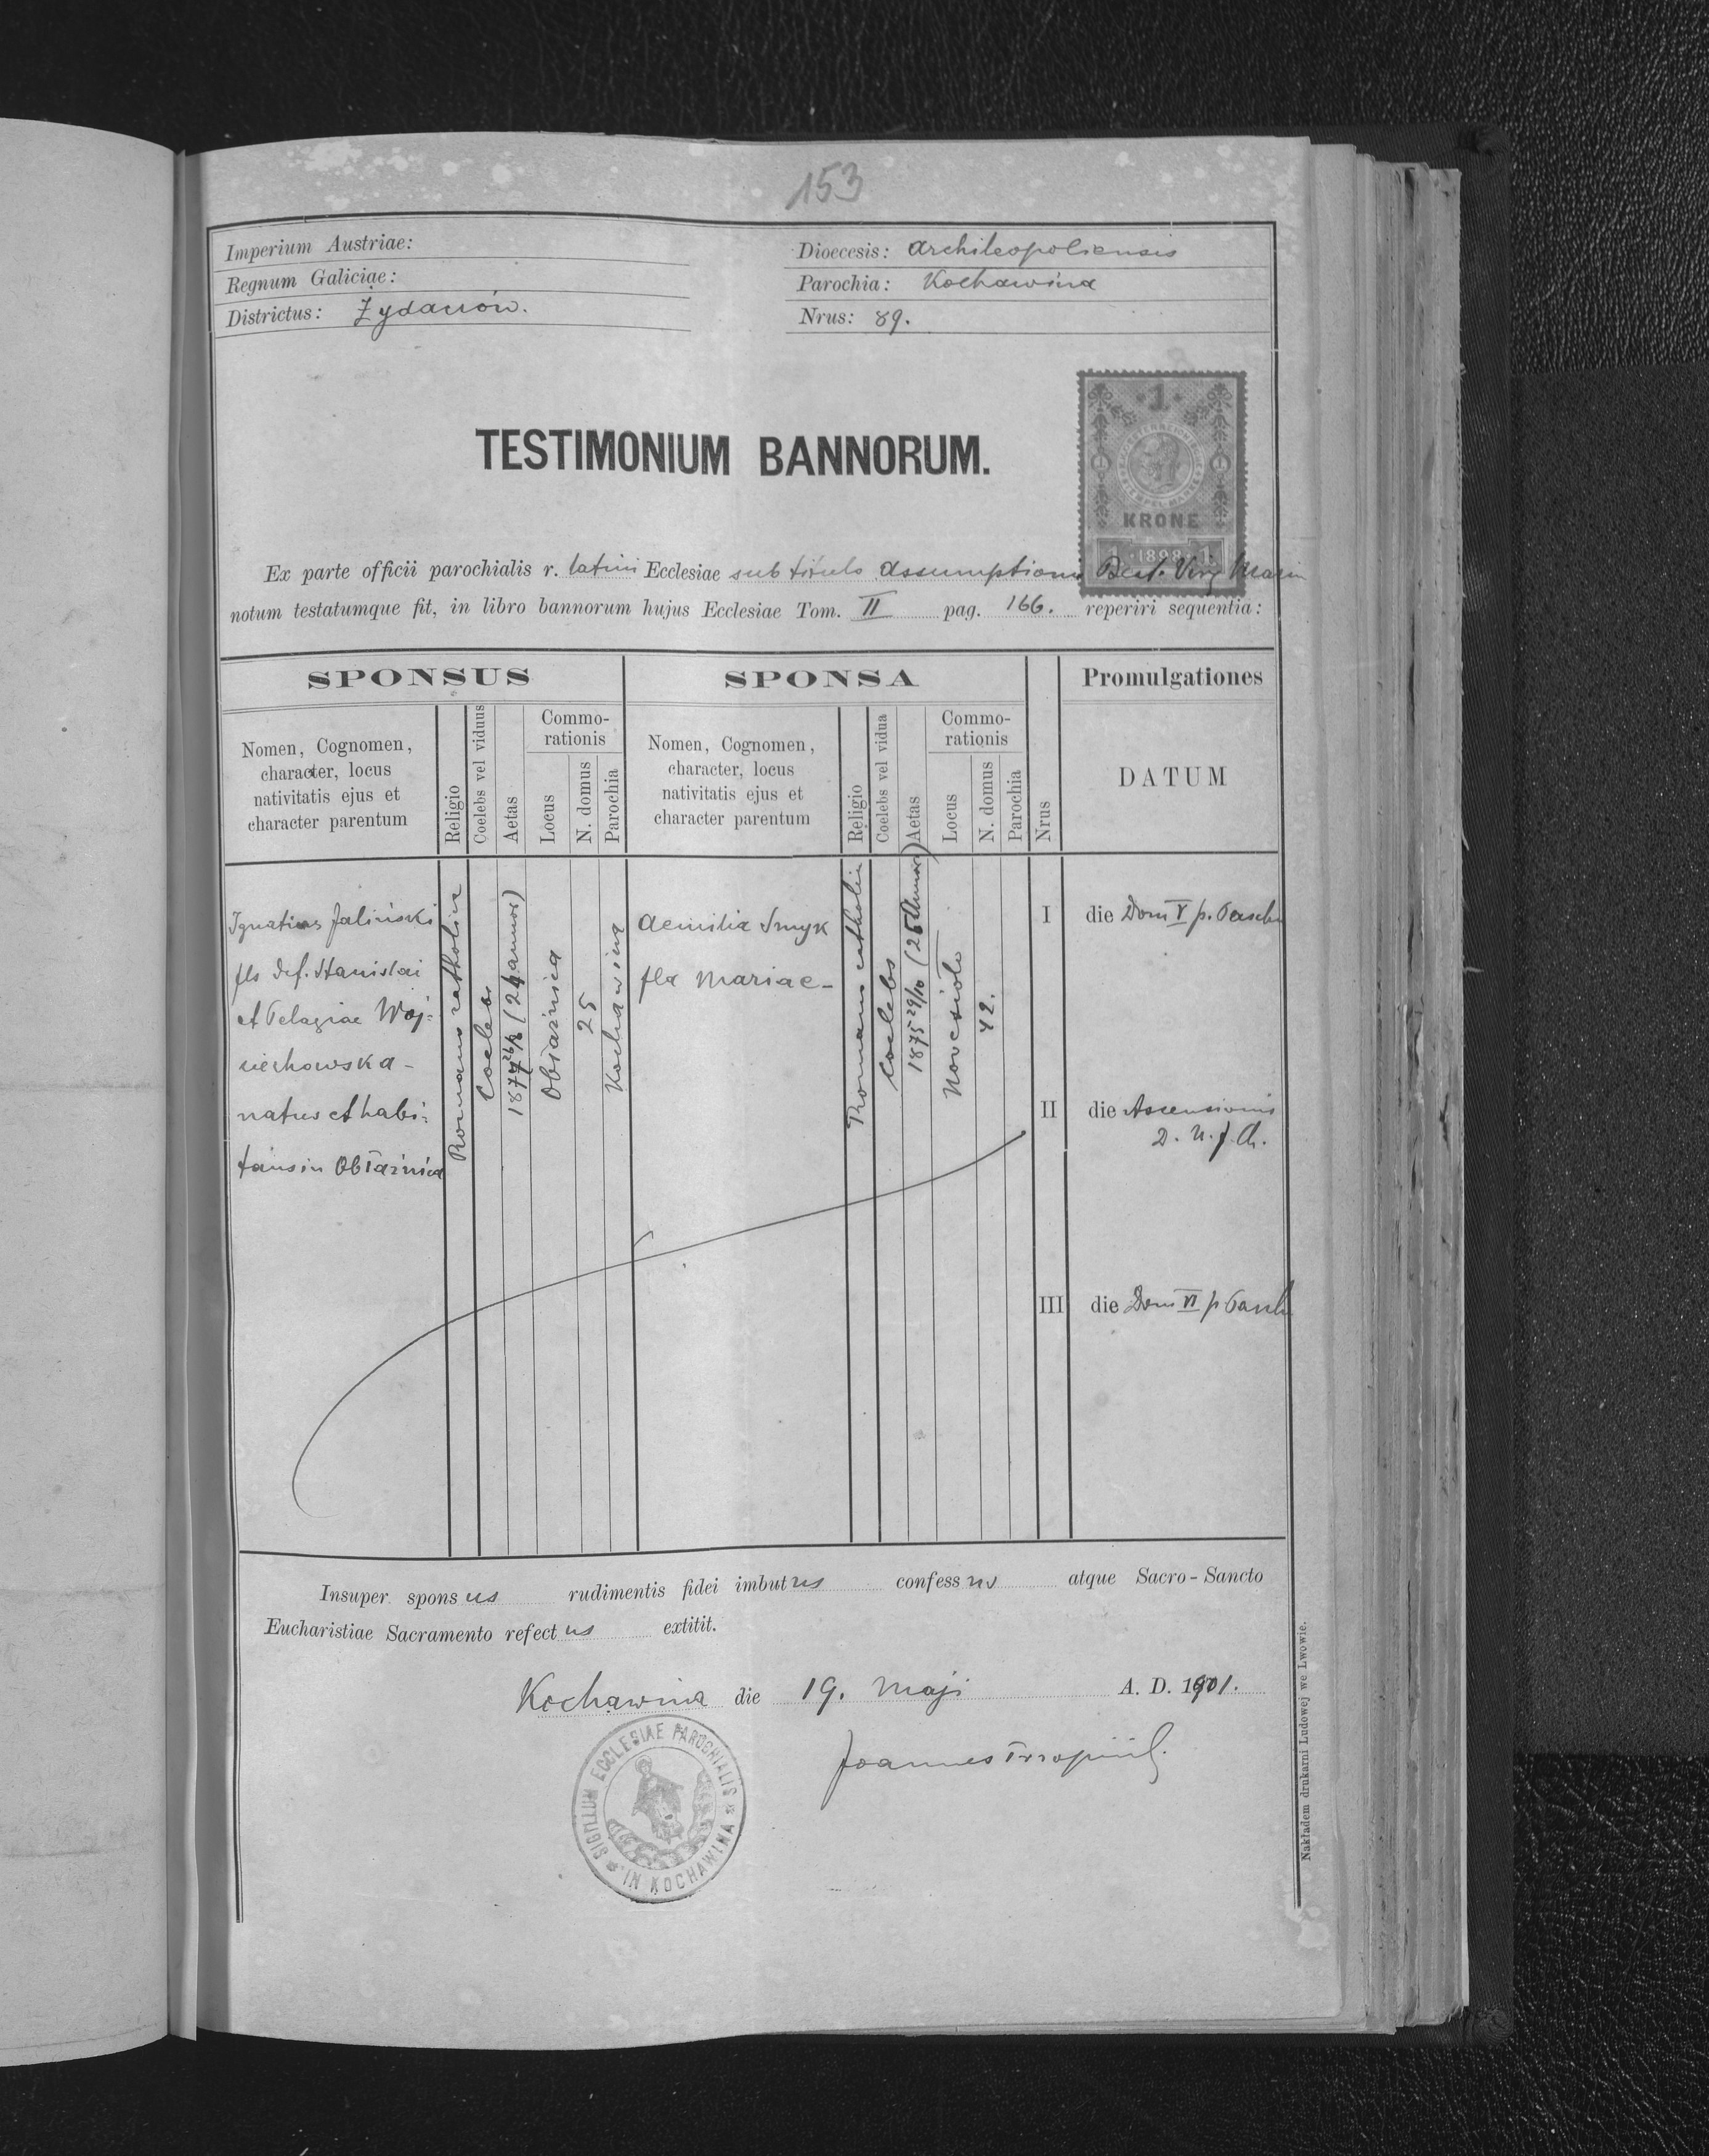 153
Imperium Austriae:
Regnum Galiciae:
Districtus: Żydaczów.
Dioecesis: Archileopoliensis
Parochia: Kochawina
Nrus: 89.
1
KRONE
1 · 1898 · 1
TESTIMONIUM BANNORUM.
Ex parte officii parochialis r. latini Ecclesiae sub titulo Assumptionis Beat. Virg Mariae
notum testatumque fit, in libro bannorum hujus Ecclesiae Tom. II pag. 166. reperiri sequentia:
SPONSUS
SPONSA
Promulgationes
Nomen, Cognomen,
character, locus
nativitatis ejus et
character parentum
Religio
Coelebs vel viduus
Aetas
Commo-
rationis
Locus
N. domus
Parochia
Nomen, Cognomen,
character, locus
nativitatis ejus et
character parentum
Religio
Coelebs vel vidua
Aetas
Commo-
rationis
Locus
N. domus
Parochia
Nrus
DATUM
Ignatius Jaliński
fls def. Stanislai
et Pelagiae Woj=
ciechowska -
natus et habi=
tans in Obłaźnica
Romano catholica
Coelebs
1877 (24 annos)
Obłaźnica
25
Kochawina
Aemilia Smyk
fla Mariae -
Romano catholica
Coelebs
1875 29/10 (25 annos)
Novesioło
42.
I die Dom V p. Pascha
II die Ascensionis
D. N. J. Ch.
III die Dom VI p Pascha
Insuper sponsus rudimentis fidei imbutus confessus atque Sacro-Sancto
Eucharistiae Sacramento refectus extitit.
Kochawina die 19. Maji A. D. 1901.
Joannes
SIGILLUM ECCLESIAE PAROCHIALIS
* IN KOCHAWINA *
Nakładem drukarni Ludowej we Lwowie.